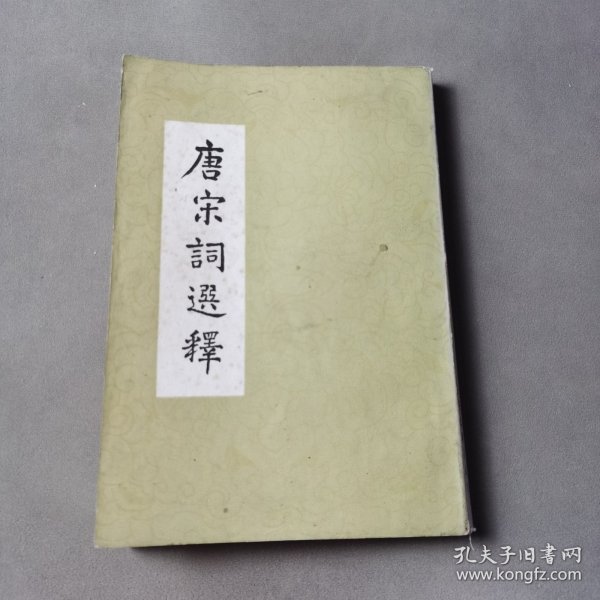 唐宋詞選釋
孔夫子旧书网
www.kongfz.com